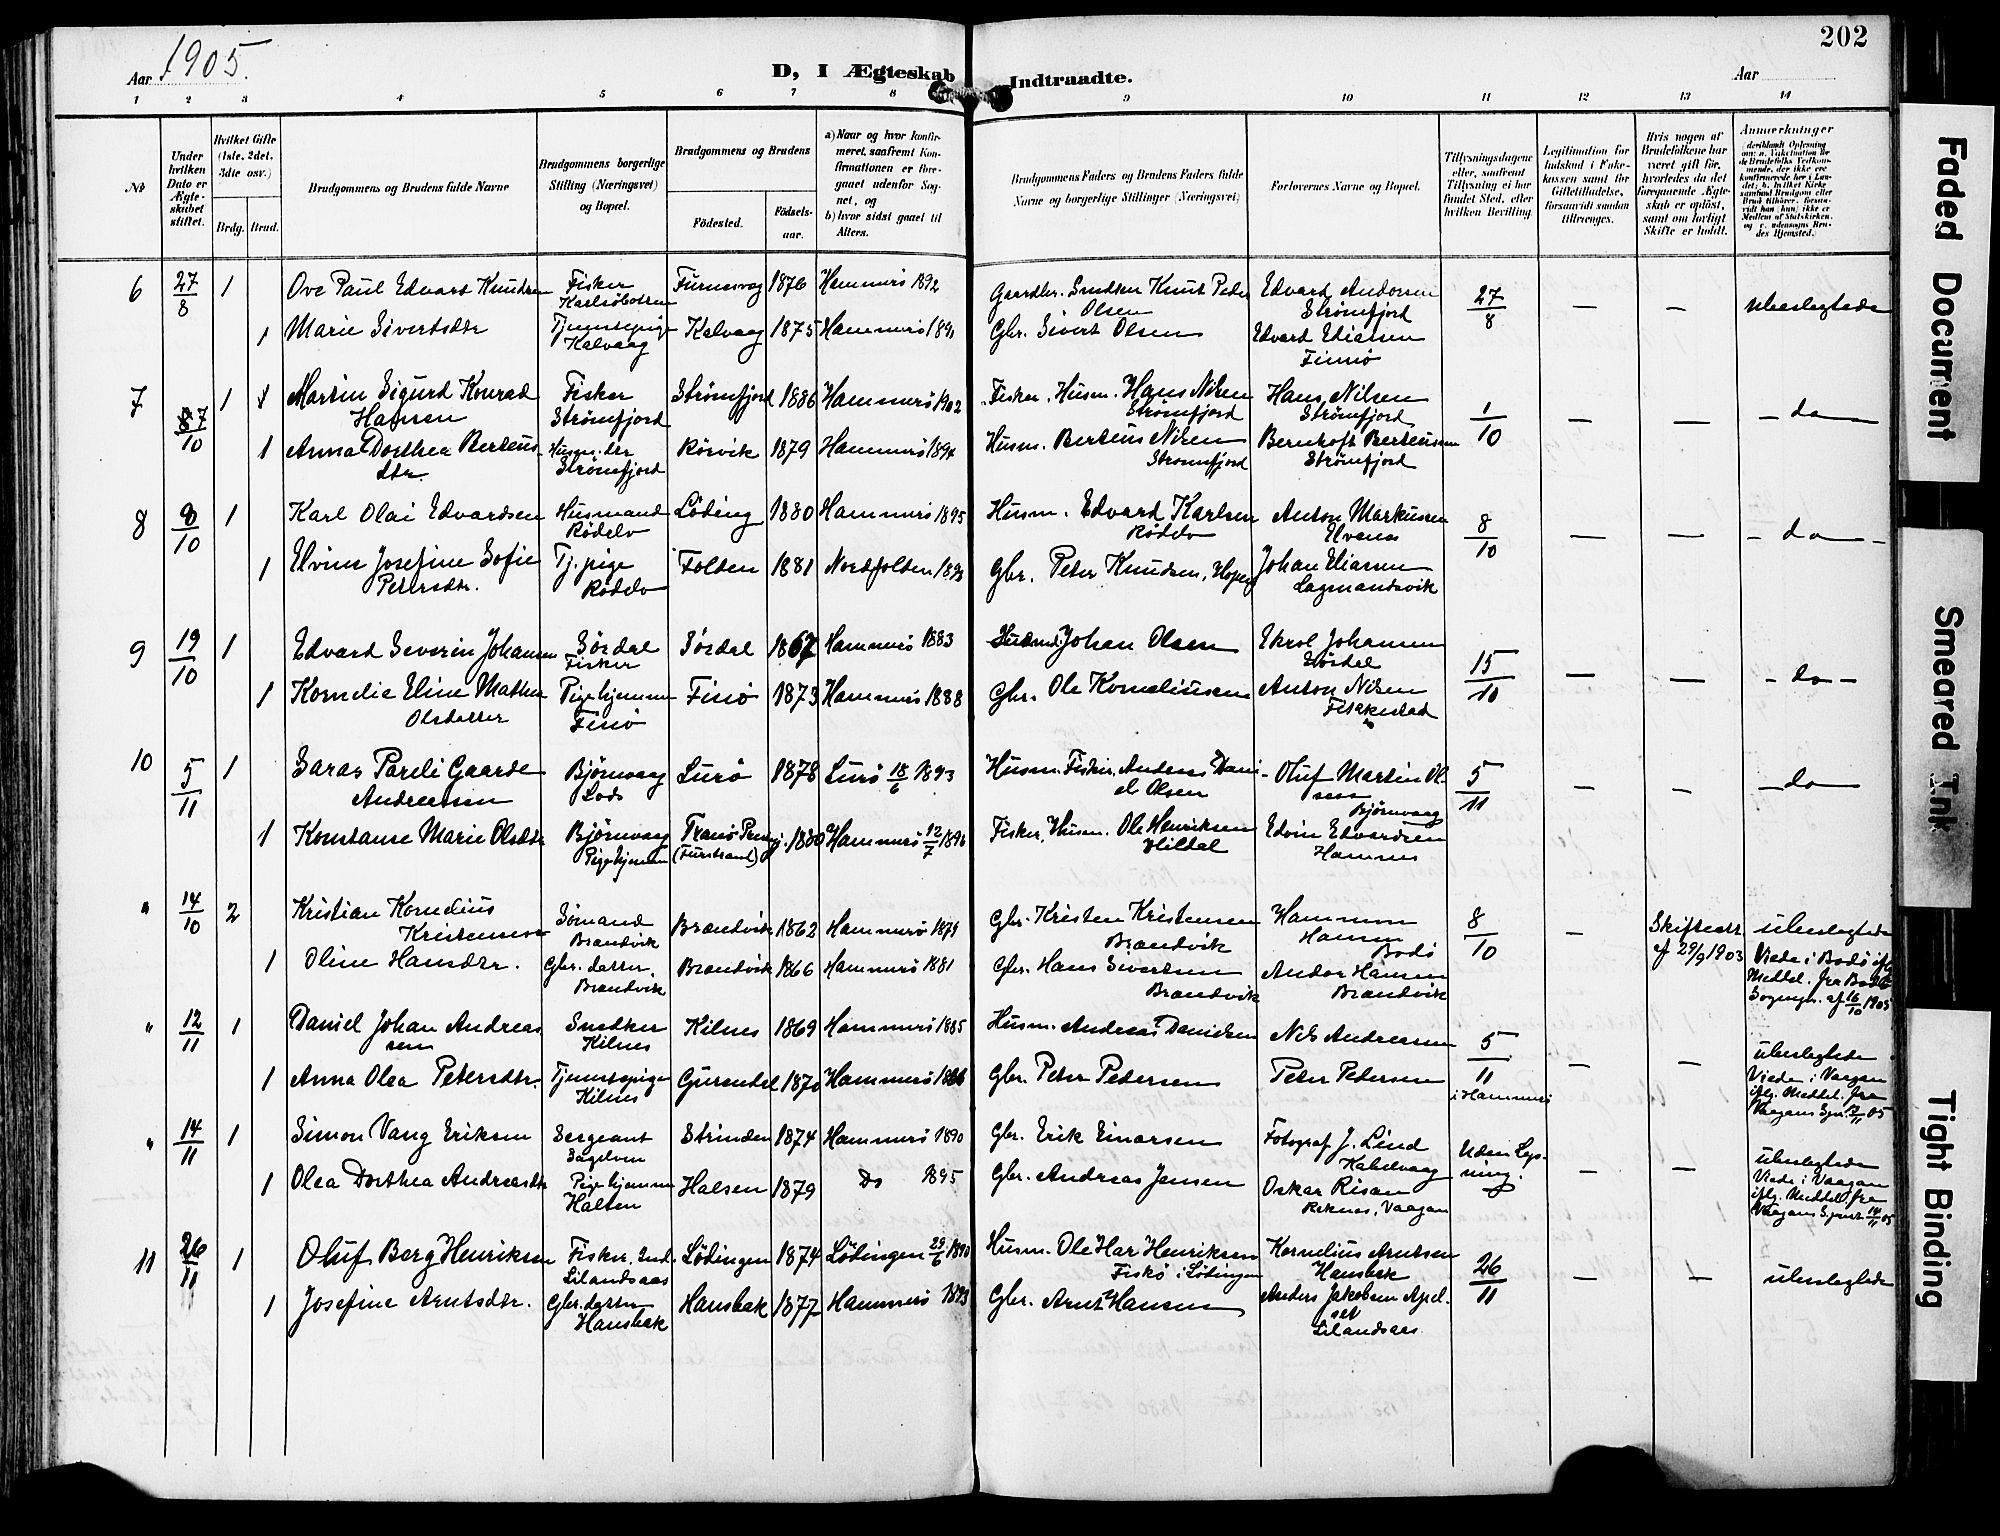 202
Aar 1905.
D, I Ægteskab Indtraadte.
Aar
1 2 3 4 5 6 7 8 9 10 11 12 13 14
No
Under hvilken Dato er Ægteskabet stiftet.
Hvilket Gifte (1ste, 2det, 3die osv.)
Brdg. Brud.
Brudgommens og Brudens fulde Navne
Brudgommens borgerlige Stilling (Næringsvei) og Bopæl.
Brudgommens og Brudens
Födested.
Födselsaar.
a) Naar og hvor konfirmeret, saafremt Konfirmationen er foregaaet udenfor Sognet, og
b) hvor sidst gaaet til Alters.
Brudgommens Faders og Brudens Faders fulde Navne og borgerlige Stillinger (Næringsvei)
Forlovernes Navne og Bopæl.
Tillysningsdagene eller, saafremt Tillysning ei har fundet Sted, efter hvilken Bevilling.
Legitimation for Indskud i Enkekassen samt for Giftetilladelse, forsaavidt saadan tiltrænges.
Hvis nogen af Brudefolkene har været gift før, hvorledes da det foregaaende Ægteskab er opløst, samt om lovligt Skifte er holdt.
Anmerkninger
6 27/8 1 Ove Paul Edvart Knudsen Fisker Furnesvag 1876 Hammerö 1892 Gaardbr. Snedker Knut Peder Olsen Edvard Andorsen Strömfjord 27/8 — — ubeslegtede
1 Marie Sivertsdtr Tjenestepige Kalvaag Kalvaag 1875 Hammerö Gbr. Sivert Olsen Edvard Finnö
7 10 1 Martin Sigurd Konrad Hansen Fisker Strömfjord Strömfjord 1886 Hammerö 1902 Fisker, Husm. Hans Nilsen Strömfjord Hans Nilsen Strömfjord 1/10 — — — do —
1 Anna Dorthea Berteusdtr. Husm. dtr Strömfjord Rörvik 1879 Hammerö 1894 Husm. Berteus Nilsen Strömfjord Bernhoft Berteussen Strömfjord
8 10 1 Karl Olai Edvardsen Husmand Rödelv Löding 1880 Hammerö 1895 Husm. Edvard Karlsen Rödelv Anton Markussen Elvenes 8/10 — — — do —
1 Elvine Josefine Sofie Petersdtr. Tj. pige Rödelv Folden 1881 Nordfolden Gbr. Peter Knudsen, Johan Eliassen Lagmandsvik
9 19/10 1 Edvard Severin Johansen Sördal Fisker Sördal 1867 Hammerö 1883 Johan Olsen Ekrol Johansen Sördal 15/10 — — — do —
1 Kornelie Eline Mathea Olsdatter Pige hjemme Finö Finö 1873 Hammerö 1888 Gbr. Ole Korneliussen Anton Nilsen Fiskkestad
10 5/11 1 Saras Pareli Gaarde Andreassen Björnvaag Lods Lurö 1878 Lurö 18/6 1893 Husm. Fisker, Andreas Daniel Olsen Oluf Martin Olsen Björnvaag 5/11 — — — do
1 Konstanse Marie Olsdtr Björnvaag Pige hjemme Tranö (Furstrand) 1880 Hammerö 12/7 1896 Fisker, Husm. Ole Henriksen Hildal Edvin Edvardsen Hamnes
" 14/10 2 Kristian Kornelius Kristensen Sömand Brændvik Brændvik 1862 Hammerö 1879 Gbr. Kristen Kristensen Brændvik Hammon Hansen Bodö 8/10 — Skifteatt. af 29/9 1903 ubeslegtede
1 Oline Hansdtr. Gbr. datter, Brændvik Brændvik 1866 Hammerö 1881 Gbr. Hans Sivertsen Brændvik Andor Hansen Brændvik Viede i Bodö ifg. Meddel. fra Bodö Sognepr. af 16/10 1905
" 12/11 1 Daniel Johan Andreassen Snedker Kilnes Kilnes 1869 Hammerö 1885 Husm. Andreas Danielsen Nils Andreassen 5/11 i Hammerö — — ubeslegtede
1 Anna Olea Petersdtr. Tjenestepige Kilnes Gurendal 1870 Hammerö Gbr. Peter Pedersen Peter Pedersen Viede i Vaagan iflg. Meddel. fra Vaagans Spr. 05
" 14/11 1 Simon Vang Eriksen Sergeant Sagelven Strinden 1874 Hammerö 1890 Gbr. Erik Einarsen Fotograf J. Lind Kabelvaag Uden Lysning. — — ubeslegtede
1 Olea Dorthea Andreasdtr Pige hjemme Halsen 1879 Do 1895 Gbr. Andreas Jensen Oskar Risan Reknes, Vaagan Viede i Vaagan iflg. Meddel. fra Vaagans Sprest 14/11 05
11 26/11 1 Oluf Berg Henriksen Fisker, Ind. Lilandsaas Lödingen 1874 Lödingen 29/6 1890 Husm. Ole Har Henriksen Fiskö i Lödingen Kornelius Arntsen Hansbak 26/11 — — ubeslegtede
1 Josefine Arntsdtr. Gbr. datter Hansbak Hansbak 1877 Hammerö 1893 Gbr. Arnt Hansen Anders Jakobsen Apelset Lilandsaas
Faded Document
Smeared Ink
Tight Binding